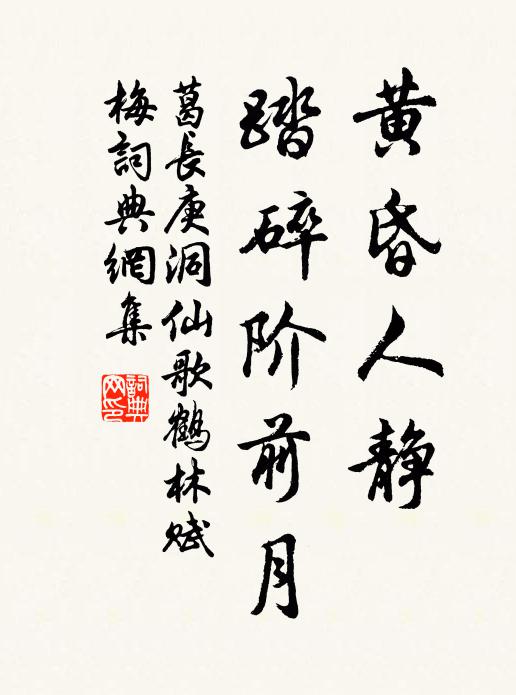 黄昏人静
踏碎阶前月
葛長庚洞仙歌鶴林赋
梅詞典網集
詞典
网印